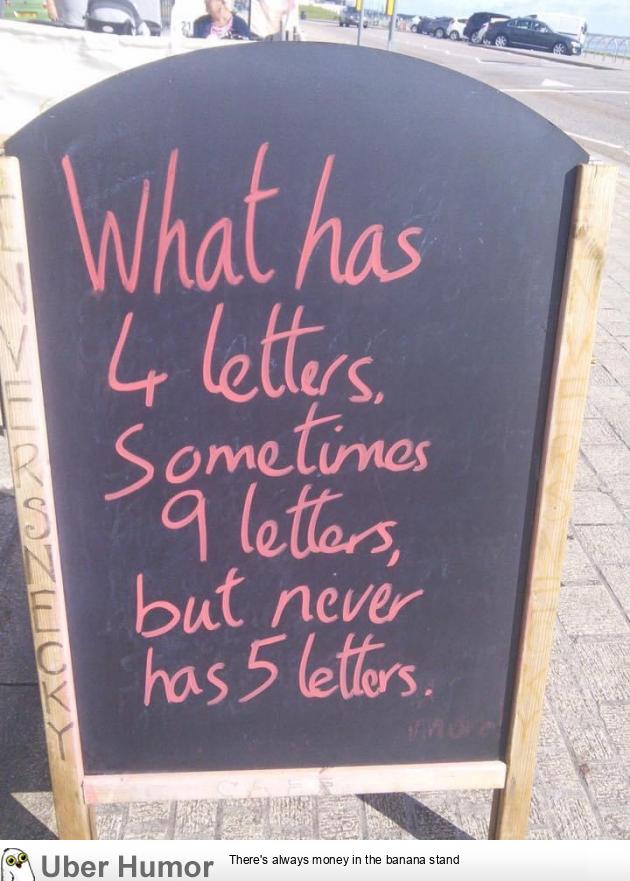 What has
4 letters,
Sometimes
9 letters,
but never
has 5 letters.
Uber Humor
There's always money in the banana stand